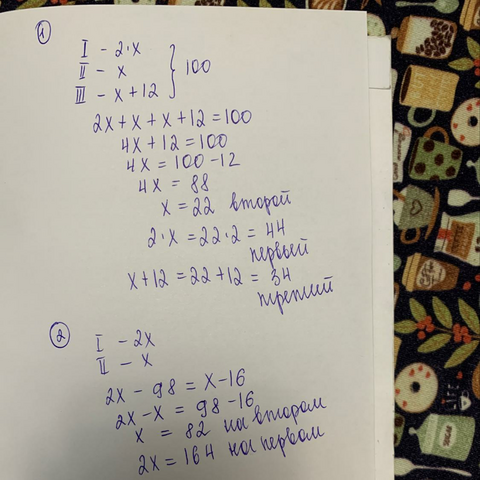 1
I - 2·x
II - x
III - x+12
} 100
2x+x+x+12=100
4x+12=100
4x=100-12
4x = 88
x=22 второй
2·x =22·2 = 44
первый
x+12 =22+12 = 34
третий
2
I - 2x
II - x
2x - 98 = x-16
2x-x = 98-16
x = 82 на втором
2x = 164 на первом